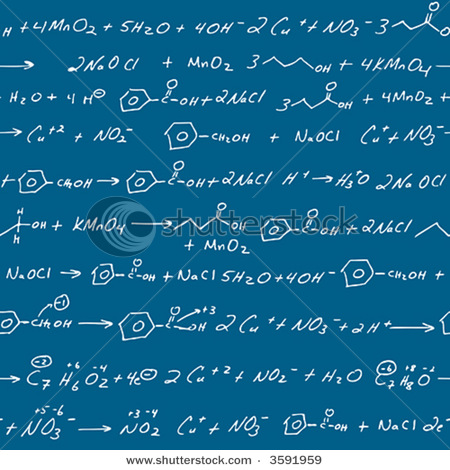 H + 4MnO₂ + 5H₂O + 4OH⁻ 2 Cu⁺ + NO₃⁻ 3
→ 2NaOCl + MnO₂ 3 OH + 4KMnO₄
+ H₂O + 4 H⊖ C OH + 2NaCl 3 O OH + 4MnO₂ +
→ Cu⁺² + NO₂⁻ CH₂OH + NaOCl Cu⁺ + NO₃⁻
+ CH₂OH → O C OH + 2NaCl H⁺ → H₃O⁺ 2NaOCl
H H OH + KMnO₄ → O OH + MnO₂ O C OH + 2NaCl
NaOCl → O C OH + NaCl 5H₂O + 4OH⁻ CH₂OH +
CH₂OH -1 → O C OH +3 2 Cu⁺ + NO₃⁻ + 2H⁺ →
→ C₇ -2 H₆ +6 O₂ -4 + 4e⊖ 2 Cu⁺² + NO₂⁻ + H₂O C₇ -6 H₈ +8 O -2
+ NO₃⁻ +5 -6 → NO₂ +3 -4 Cu⁺ + NO₃⁻ O C OH + NaCl 2e⁻
shutterstock
www.shutterstock.com · 3591959